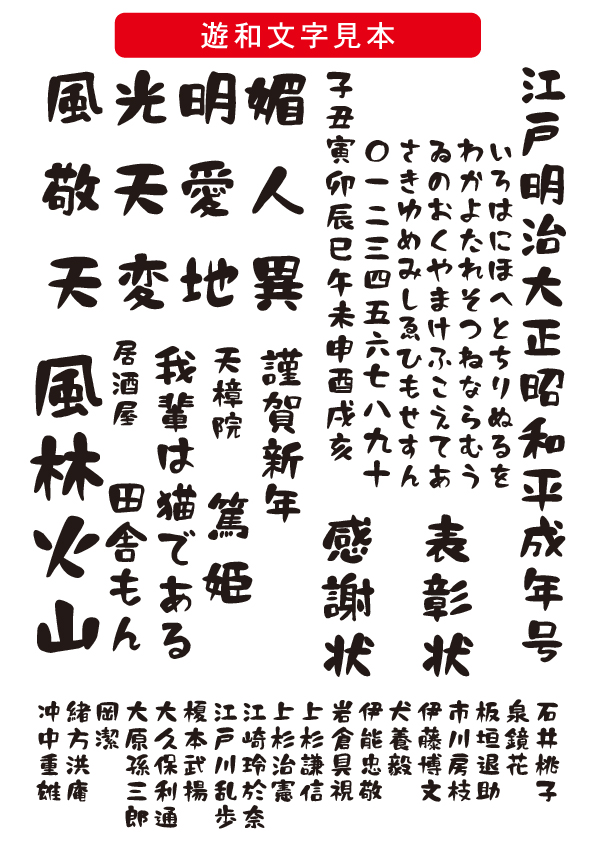 遊和文字見本
江戸明治大正昭和平成年号
いろはにほへとちりぬるを
わかよたれそつねならむう
ゐのおくやまけふこえてあ
さきゆめみしゑひもせすん
〇一二三四五六七八九十
子丑寅卯辰巳午未申酉戌亥
表彰状
感謝状
風光明媚
敬天愛人
天変地異
謹賀新年
天樟院 篤姫
我輩は猫である
居酒屋 田舎もん
風林火山
石井桃子
泉鏡花
板垣退助
市川房枝
伊藤博文
犬養毅
伊能忠敬
岩倉具視
上杉謙信
上杉治憲
江崎玲於奈
江戸川乱歩
榎本武揚
大久保利通
大原孫三郎
岡潔
緒方洪庵
冲中重雄